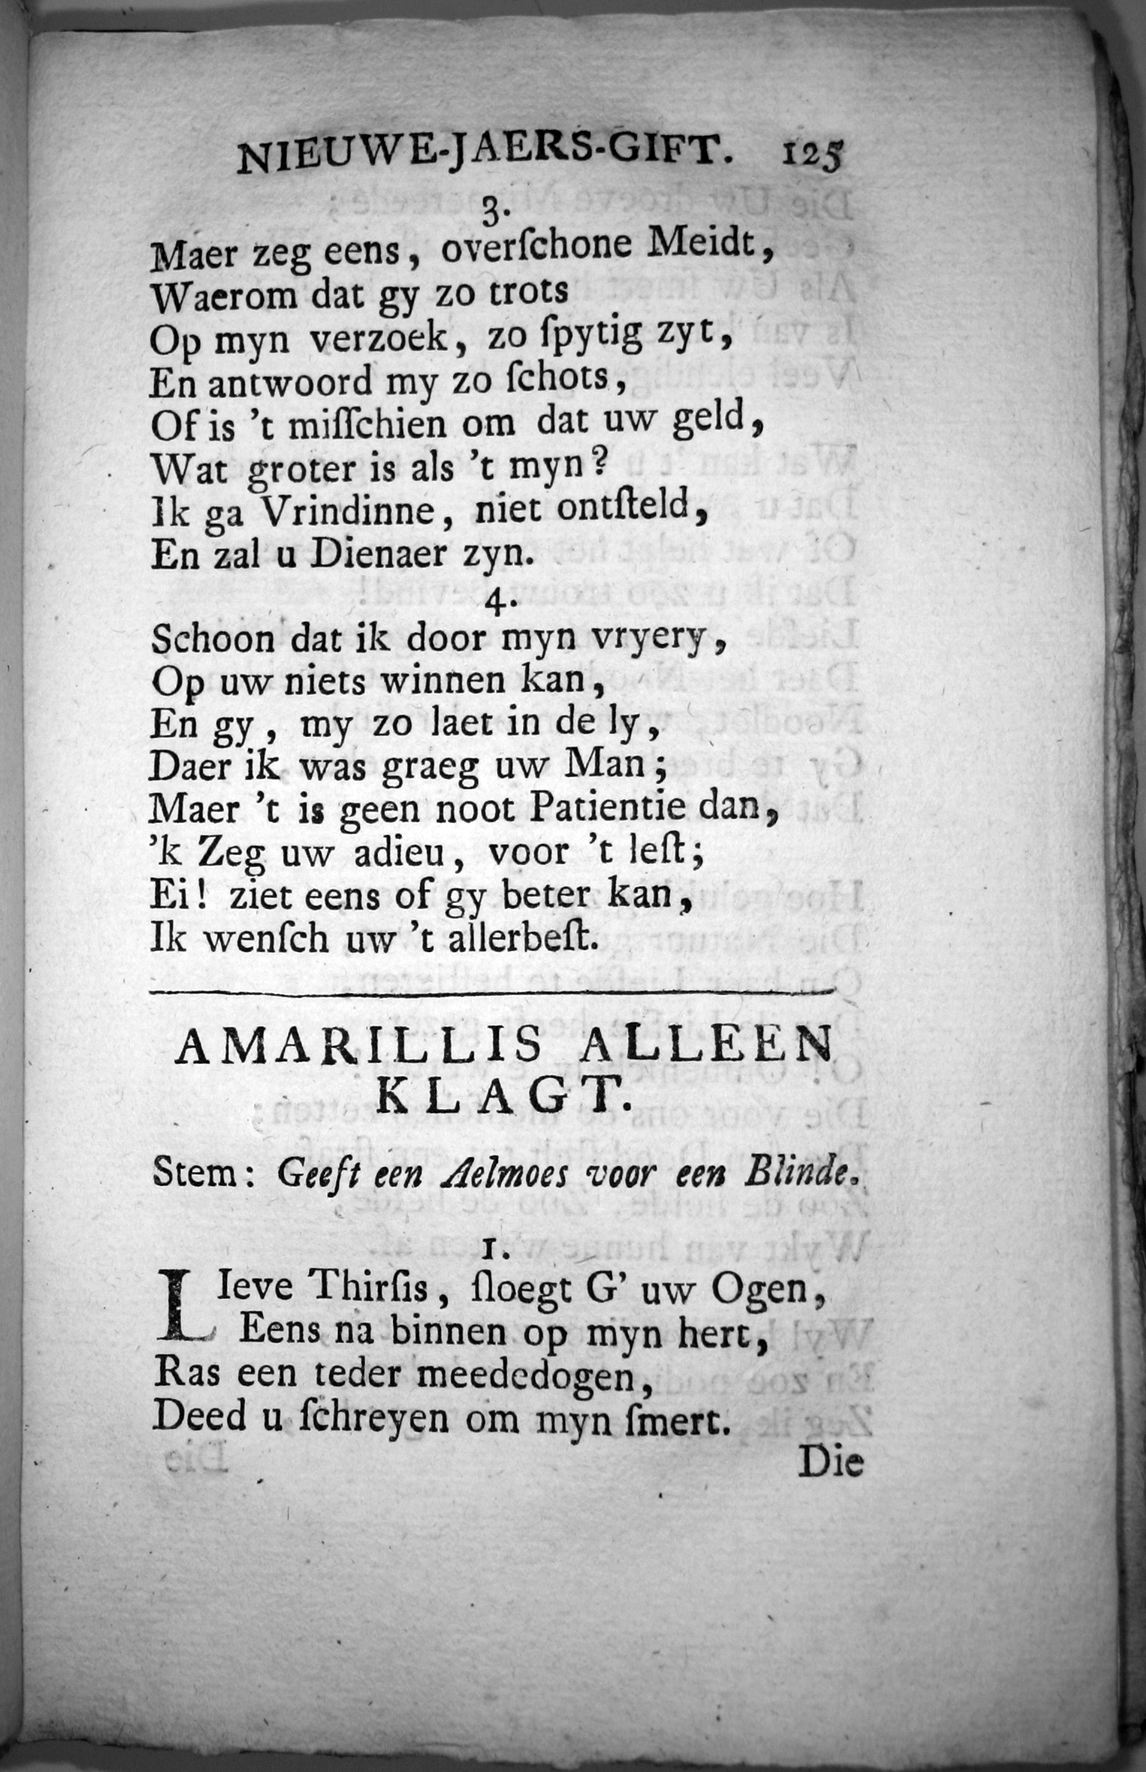 NIEUWE-JAERS-GIFT. 125
3.
Maer zeg eens, overſchone Meidt,
Waerom dat gy zo trots
Op myn verzoek, zo ſpytig zyt,
En antwoord my zo ſchots,
Of is 't miſſchien om dat uw geld,
Wat groter is als 't myn?
Ik ga Vrindinne, niet ontſteld,
En zal u Dienaer zyn.
4.
Schoon dat ik door myn vryery,
Op uw niets winnen kan,
En gy, my zo laet in de ly,
Daer ik was graeg uw Man;
Maer 't is geen noot Patientie dan,
'k Zeg uw adieu, voor 't leſt;
Ei! ziet eens of gy beter kan,
Ik wenſch uw 't allerbeſt.
AMARILLIS ALLEEN
KLAGT.
Stem: Geeft een Aelmoes voor een Blinde.
1.
LIeve Thirſis, ſloegt G' uw Ogen,
Eens na binnen op myn hert,
Ras een teder meededogen,
Deed u ſchreyen om myn ſmert.
Die